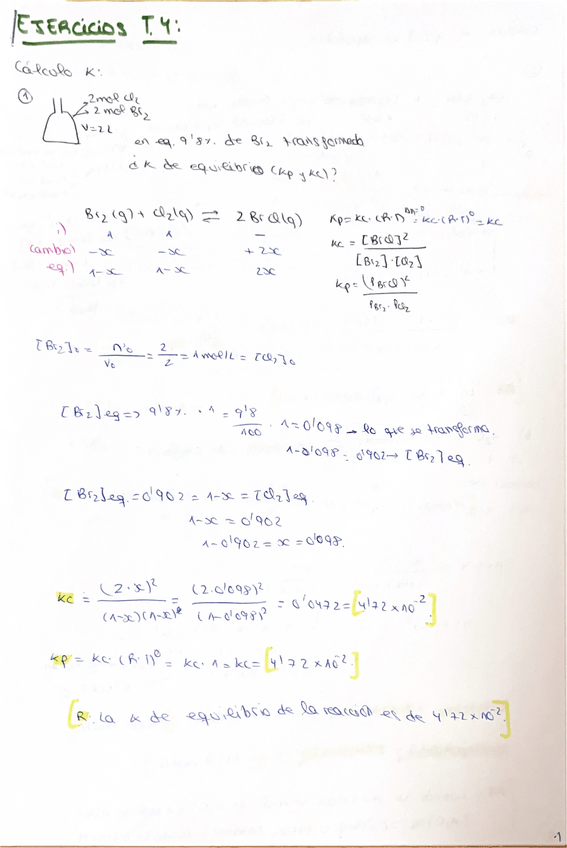 EJERCICIOS T.4:
Cálculo K:
① 2mol Cl₂
2 mol Br₂
V=2L
en eq. 9'8%. de Br₂ transformado
¿K de equilibrio (Kp y Kc)?
Br₂(g) + Cl₂(g) ⇌ 2BrCl(g)
i) 1 1 –
cambio) -x -x +2x
eq.) 1-x 1-x 2x
Kp=Kc·(R·T)^Δn=0 = Kc·(R·T)⁰=Kc
Kc = [BrCl]² / [Br₂]·[Cl₂]
Kp = (PBrCl)² / PBr₂ · PCl₂
[Br₂]₀ = nº₀/V₀ = 2/2 = 1 mol/L = [Cl₂]₀
[Br₂]eq => 9'8%. · 1 = 9'8/100 · 1 = 0'098 → lo que se transforma.
1-0'098 = 0'902 → [Br₂]eq.
[Br₂]eq. = 0'902 = 1-x = [Cl₂]eq.
1-x = 0'902
1-0'902 = x = 0'098.
Kc = (2·x)² / (1-x)(1-x) = (2·0'098)² / (1-0'098)² = 0'0472 = [4'72×10⁻²]
Kp = Kc·(R·T)⁰ = Kc·1 = Kc = [4'72×10⁻²]
[R: La K de equilibrio de la reacción es de 4'72×10⁻².]
1